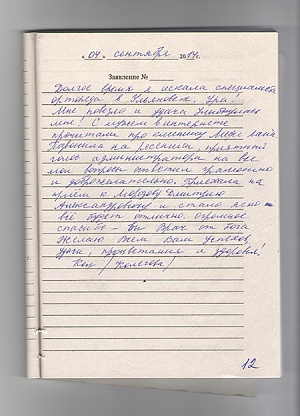 « 04 » сентября 2014г.
Заявление №
Долгое время я искала специалиста
ортопеда в Ульяновск. Ура!
Мне повезло и удача улыбнулась
мне! С мужем в интернете
прочитали про клинику Мед
Позвонила на ресепшн, приятный
голос администратора на все
мои вопросы ответил грамотно
и доброжелательно. Приехала на
приём к Морозову Дмитрию
Александровичу и стало ясно –
всё будет отлично. Огромное
спасибо – Вы врач от бога
Желаю Всем Вам успехов,
удачи, процветания и здоровья!
/Колегова/
12